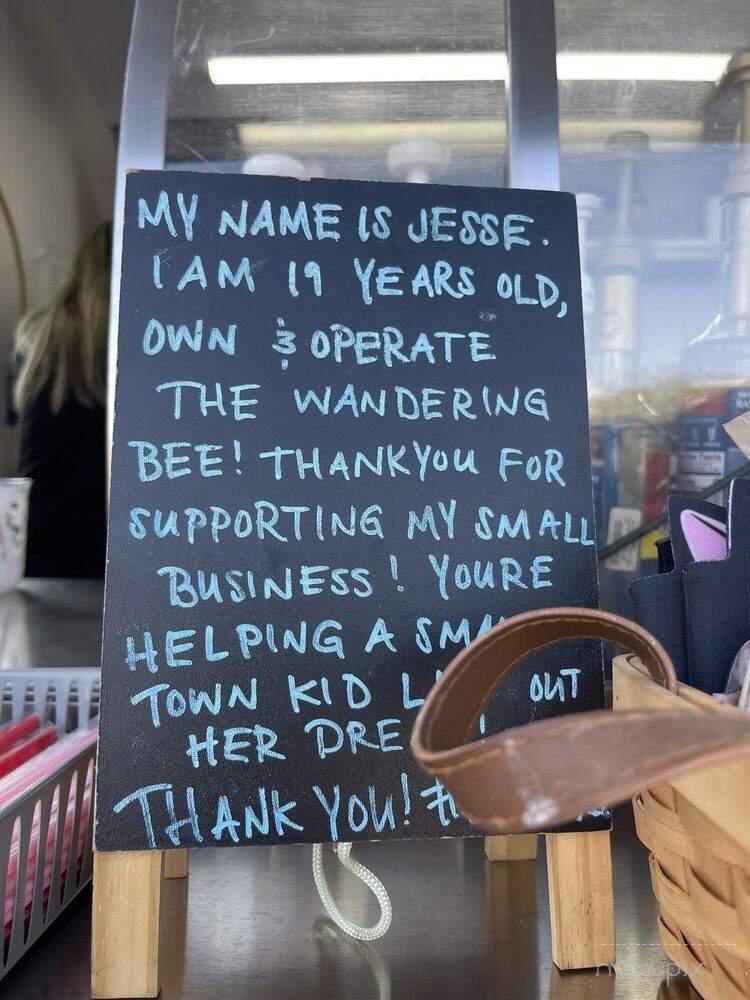 MY NAME IS JESSE.
I AM 19 YEARS OLD,
OWN & OPERATE
THE WANDERING
BEE! THANKYOU FOR
SUPPORTING MY SMALL
BUSINESS! YOURE
HELPING A
TOWN KID OUT
HER
THANK YOU!